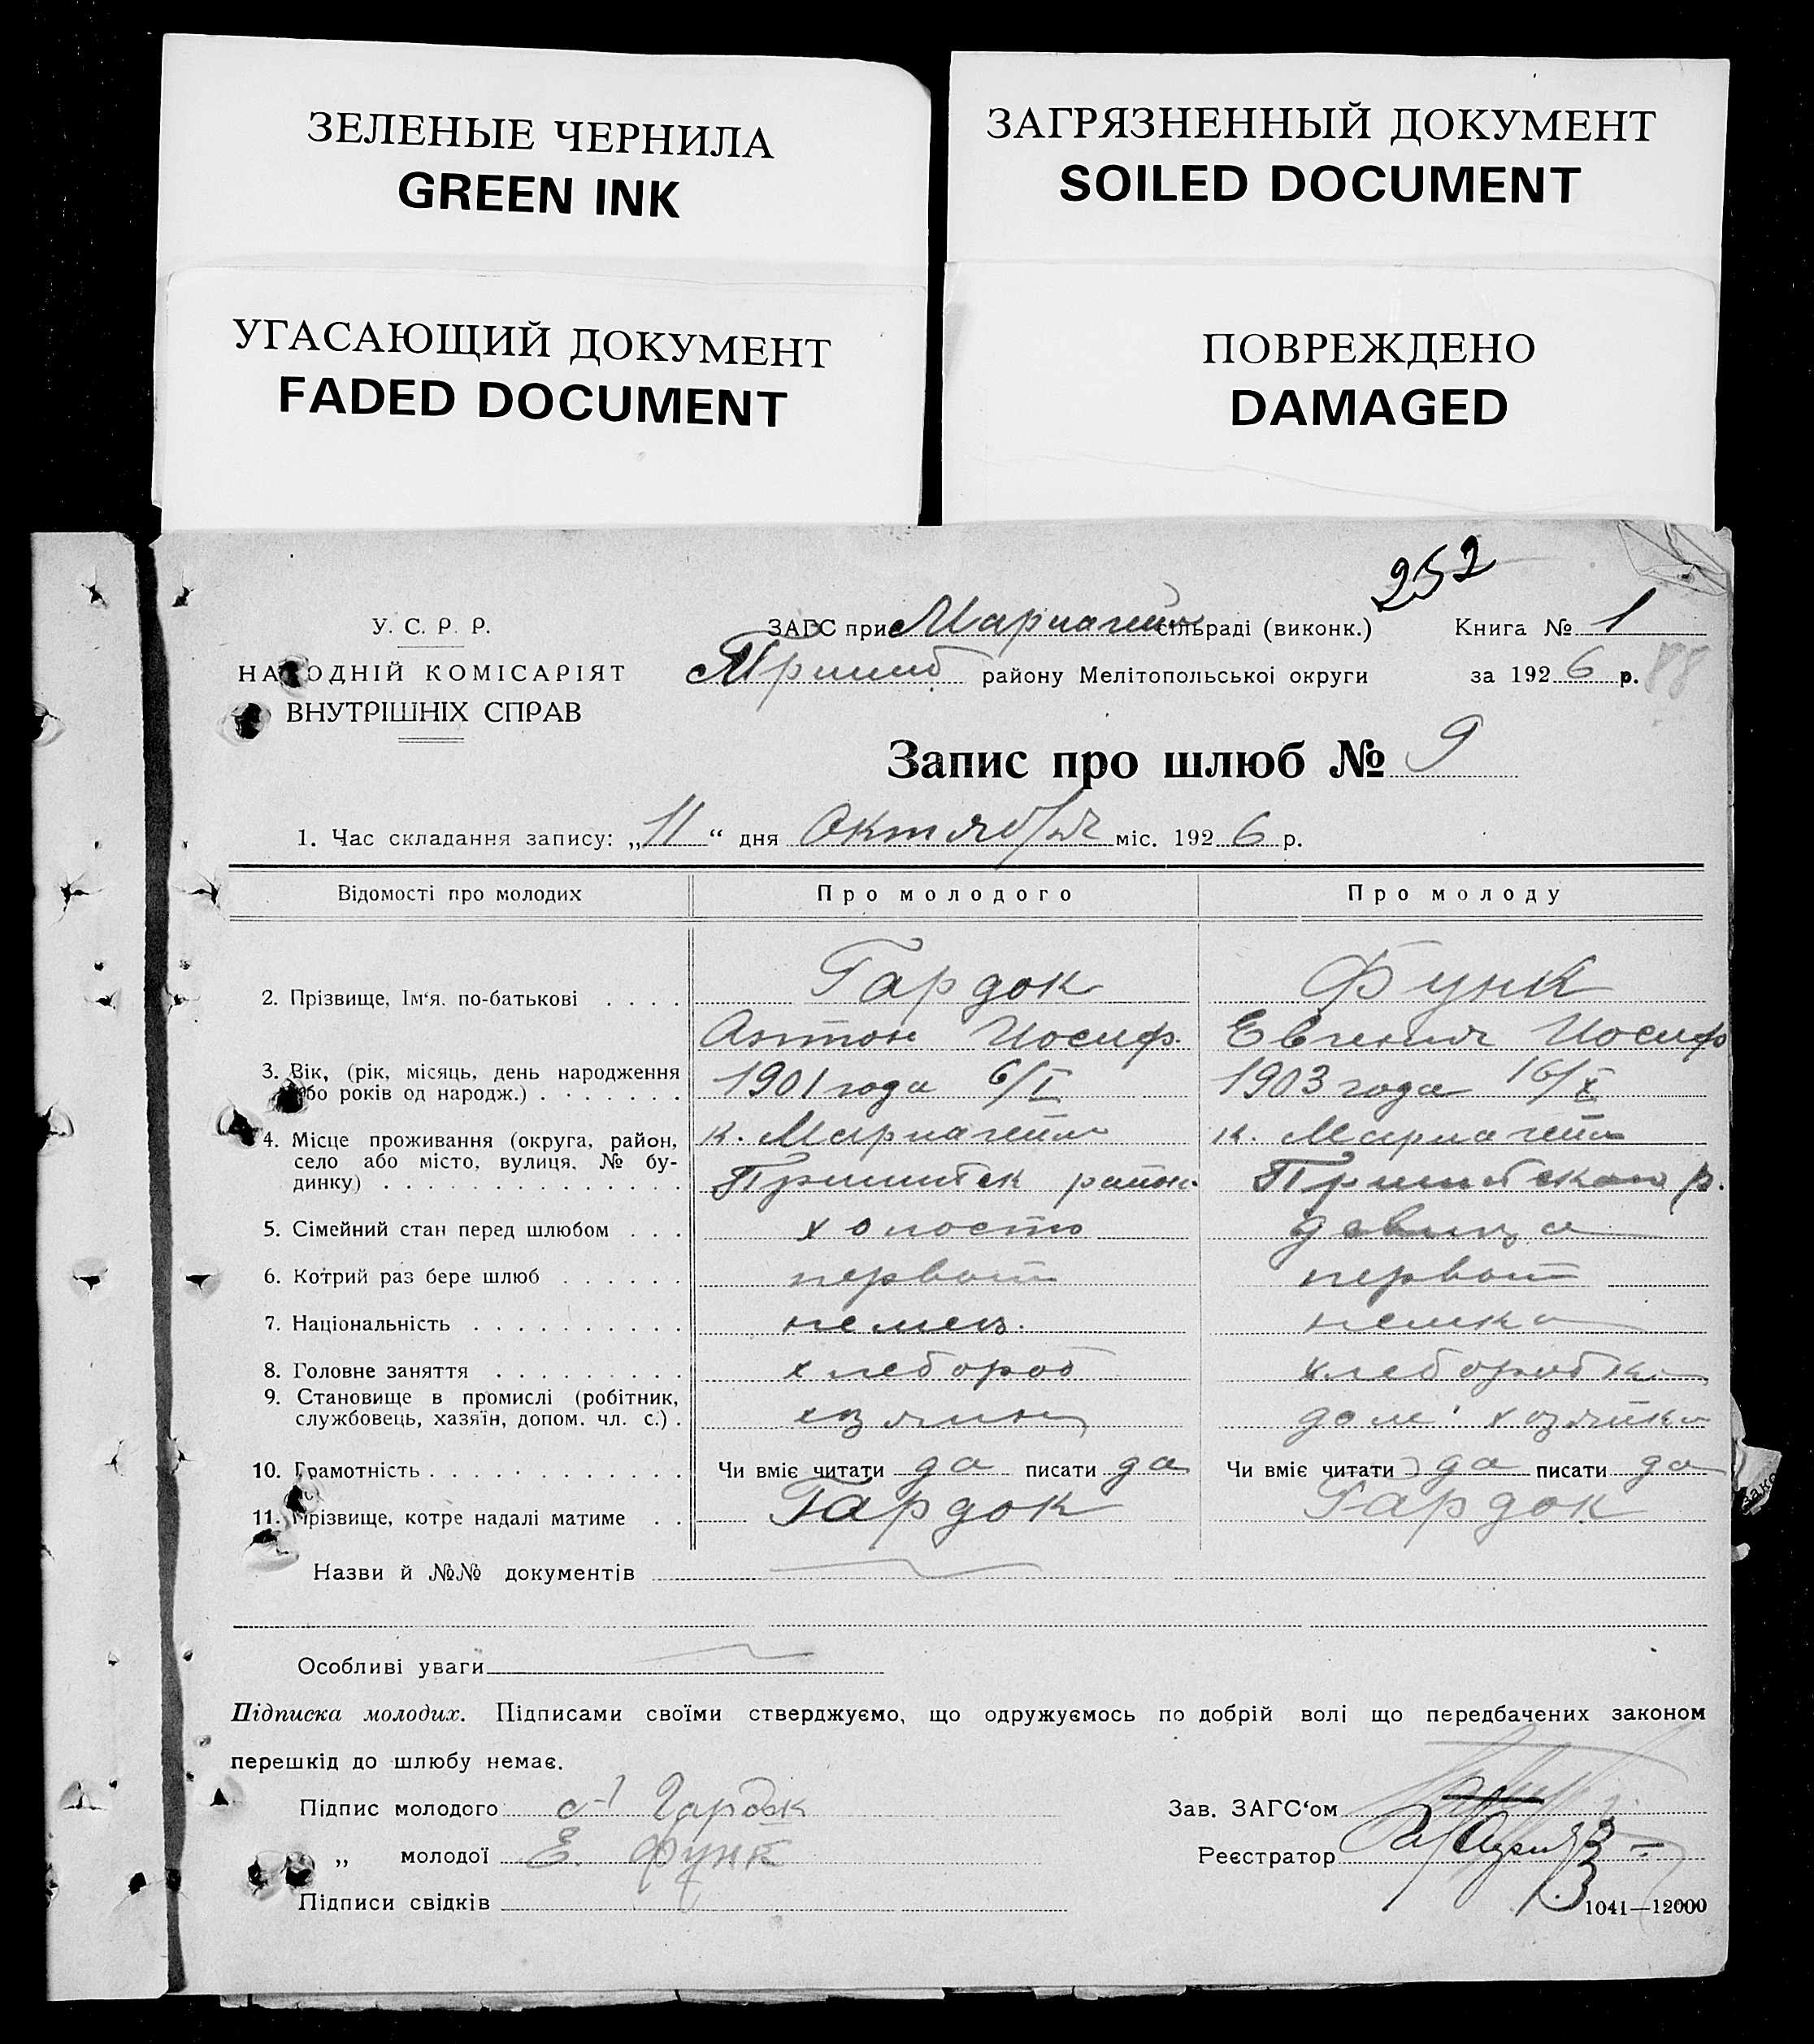 ЗЕЛЕНЫЕ ЧЕРНИЛА
GREEN INK
ЗАГРЯЗНЕННЫЙ ДОКУМЕНТ
SOILED DOCUMENT
УГАСАЮЩИЙ ДОКУМЕНТ
FADED DOCUMENT
ПОВРЕЖДЕНО
DAMAGED
252
У. С. Р. Р.
НАРОДНІЙ КОМІСАРІЯТ
ВНУТРІШНІХ СПРАВ
ЗАГС при Мариагейм сільраді (виконк.) Книга № 1
Пришиб району Мелітопольської округи за 1926 р. 88
Запис про шлюб № 9
1. Час складання запису: „11“ дня Октября міс. 1926 р.
Відомості про молодих Про молодого Про молоду
2. Прізвище, Ім‘я, по-батькові . . . . Гардок Функ
Антон Иосиф. Евгения Иосиф
3. Вік, (рік, місяць, день народження 1901 года 6/I 1903 года 16/X
або років од народж.) . . . . . . .
4. Місце проживання (округа, район, к. Мариагейм к. Мариагейм
село або місто, вулиця, № бу-
динку) . . . . . . . . . . . . . . Пришибск район. Пришибского р.
5. Сімейний стан перед шлюбом . . . холост девица
6. Котрий раз бере шлюб . . . . . . первый первый
7. Національність . . . . . . . . . . немец. немка
8. Головне заняття . . . . . . . . . хлебороб хлеборобка
9. Становище в промислі (робітник,
службовець, хазяїн, допом. чл. с.) . хозяин дом. хозяйка
10. Грамотність . . . . . . . . . . . . Чи вміє читати да писати да Чи вміє читати да писати да
11. Прізвище, котре надалі матиме . . Гардок Гардок
Назви й №№ документів
Особливі уваги
Підписка молодих. Підписами своїми стверджуємо, що одружуємось по добрій волі що передбачених законом
перешкід до шлюбу немає.
Підпис молодого А Гардок Зав. ЗАГС‘ом
„ молодої Е. Функ Реєстратор
Підписи свідків
1041—12000